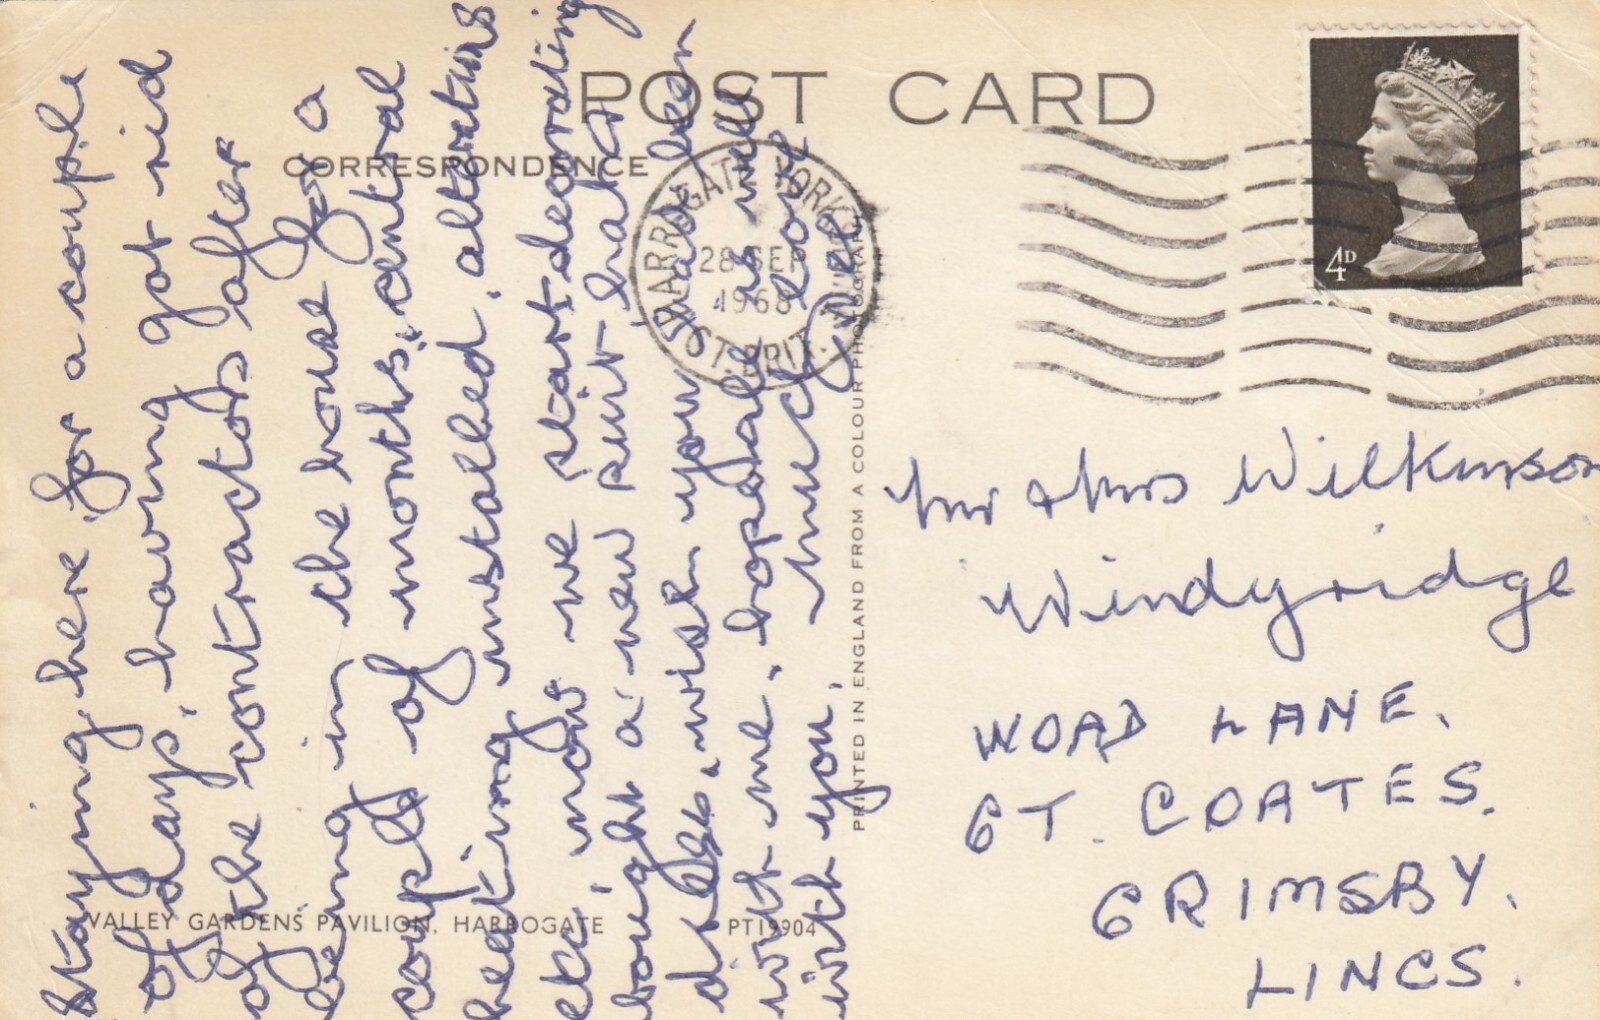 POST CARD
CORRESPONDENCE
HARROGATE YORKS
28 SEP
1968
GT. BRIT.
4D
Staying here for a couple
of days, having got rid
of the contractors after
being in the house for a
couple of months, central
heating installed, alterations
etc, now we start decorating
bought a new suit hat &
dress, wish you had been
with me, hope all is well
with you, much love
Mr & Mrs Wilkinson
Windyridge
WOAD LANE.
GT. COATES.
GRIMSBY.
LINCS.
PRINTED IN ENGLAND FROM A COLOUR PHOTOGRAPH
VALLEY GARDENS PAVILION, HARROGATE
PT19904